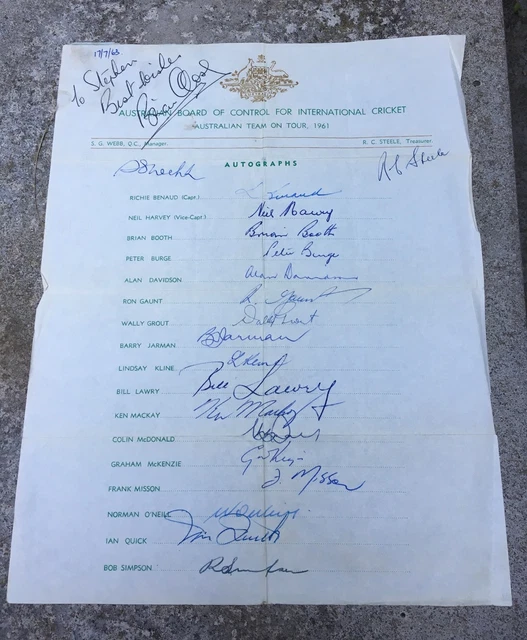 17/7/63
To Stephen
Best wishes
Brian Close
AUSTRALIAN BOARD OF CONTROL FOR INTERNATIONAL CRICKET
AUSTRALIAN TEAM ON TOUR, 1961
S. G. WEBB, Q.C., Manager. R. C. STEELE, Treasurer
R C Steele
AUTOGRAPHS
RICHIE BENAUD (Capt.) R. Benaud
NEIL HARVEY (Vice-Capt.) Neil Harvey
BRIAN BOOTH Brian Booth
PETER BURGE Peter Burge
ALAN DAVIDSON Alan Davidson
RON GAUNT R. Gaunt
WALLY GROUT Wally Grout
BARRY JARMAN B Jarman
LINDSAY KLINE L Kline
BILL LAWRY Bill Lawry
KEN MACKAY Ken Mackay
COLIN McDONALD
GRAHAM McKENZIE
FRANK MISSON F. Misson
NORMAN O'NEILL
IAN QUICK Ian Quick
BOB SIMPSON R Simpson